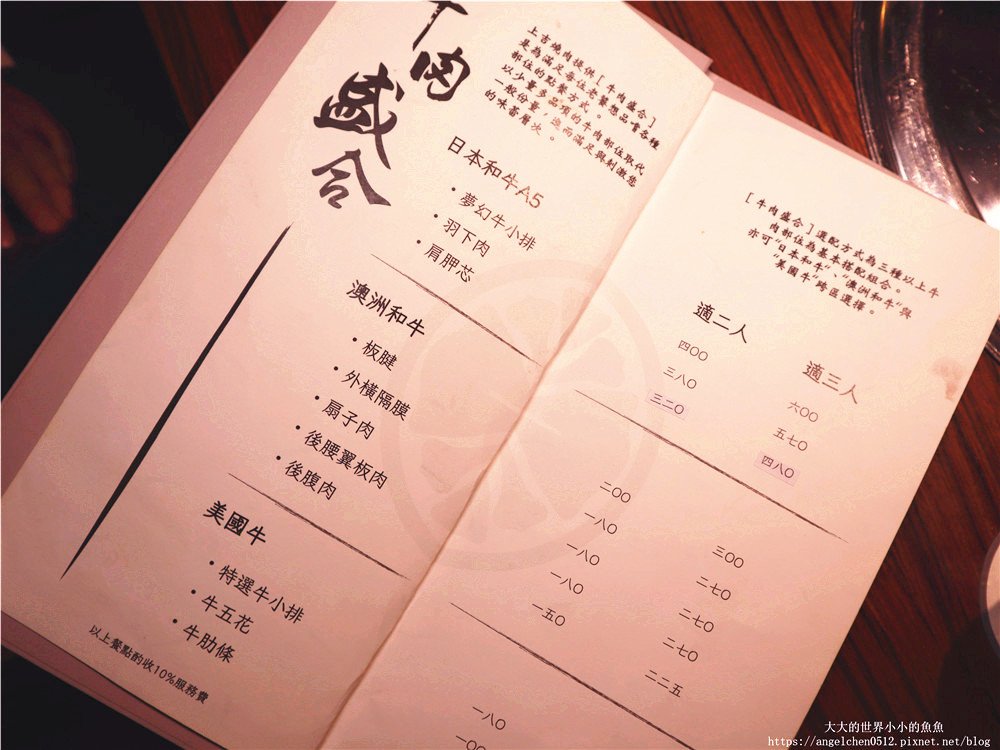 牛肉
盛合
上吉燒肉提供[牛肉盛合]
是為滿足每位老饕想品嚐各種
部位的點餐方式。
以少量多品項的牛肉部位取代
一般份量，進而滿足與刺激您
的味蕾層次。
日本和牛A5
・夢幻牛小排
・羽下肉
・肩胛芯
澳洲和牛
・板腱
・外橫隔膜
・扇子肉
・後腰翼板肉
・後腹肉
美國牛
・特選牛小排
・牛五花
・牛肋條
以上餐點酌收10%服務費
[牛肉盛合]選配方式為三種以上牛
肉部位為基本搭配組合。
亦可"日本和牛"、"澳洲和牛"與
"美國牛"跨區選擇。
適二人
四〇〇
三八〇
三二〇
二〇〇
一八〇
一八〇
一八〇
一五〇
一八〇
一〇〇
適三人
六〇〇
五七〇
四八〇
三〇〇
二七〇
二七〇
二七〇
二二五
大大的世界小小的魚魚
https://angelchen0512.pixnet.net/blog